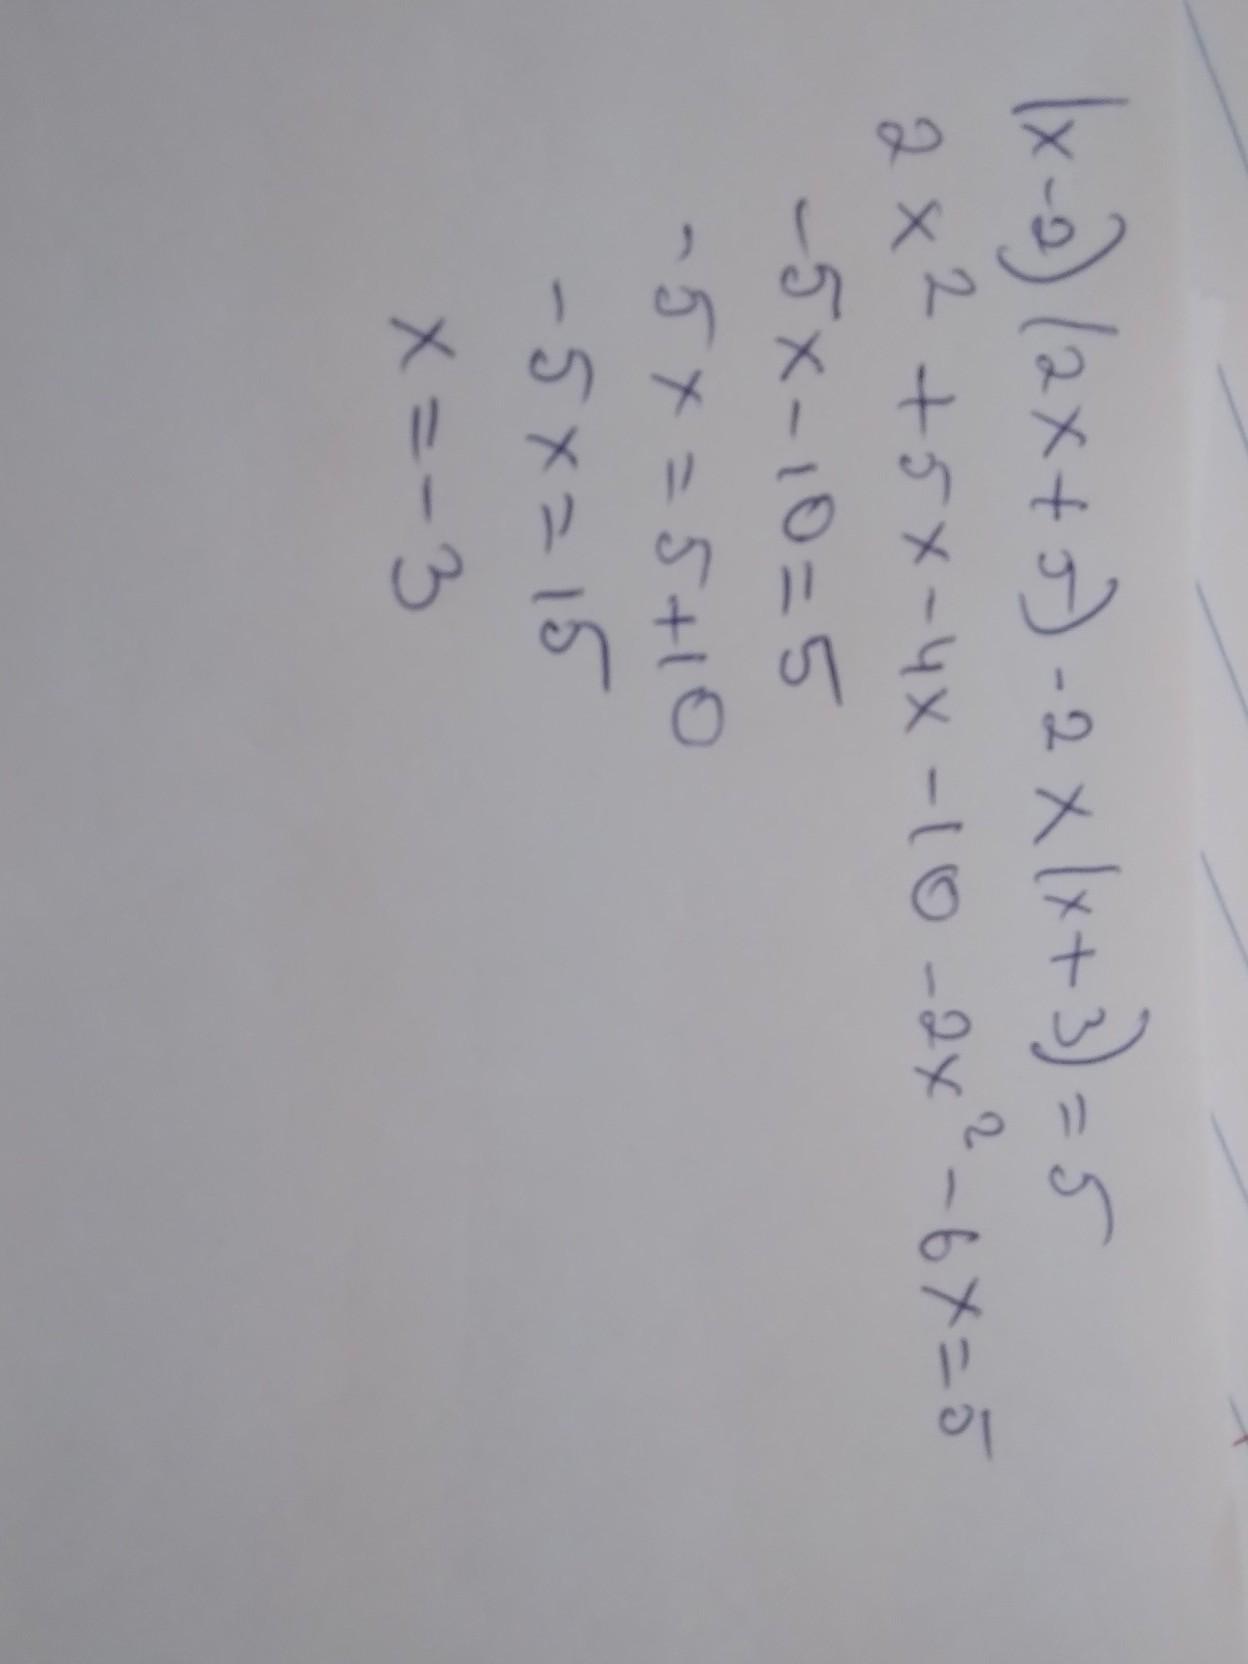 (x-2)(2x+5)-2x(x+3)=5
2x²+5x-4x-10-2x²-6x=5
-5x-10=5
-5x=5+10
-5x=15
x=-3